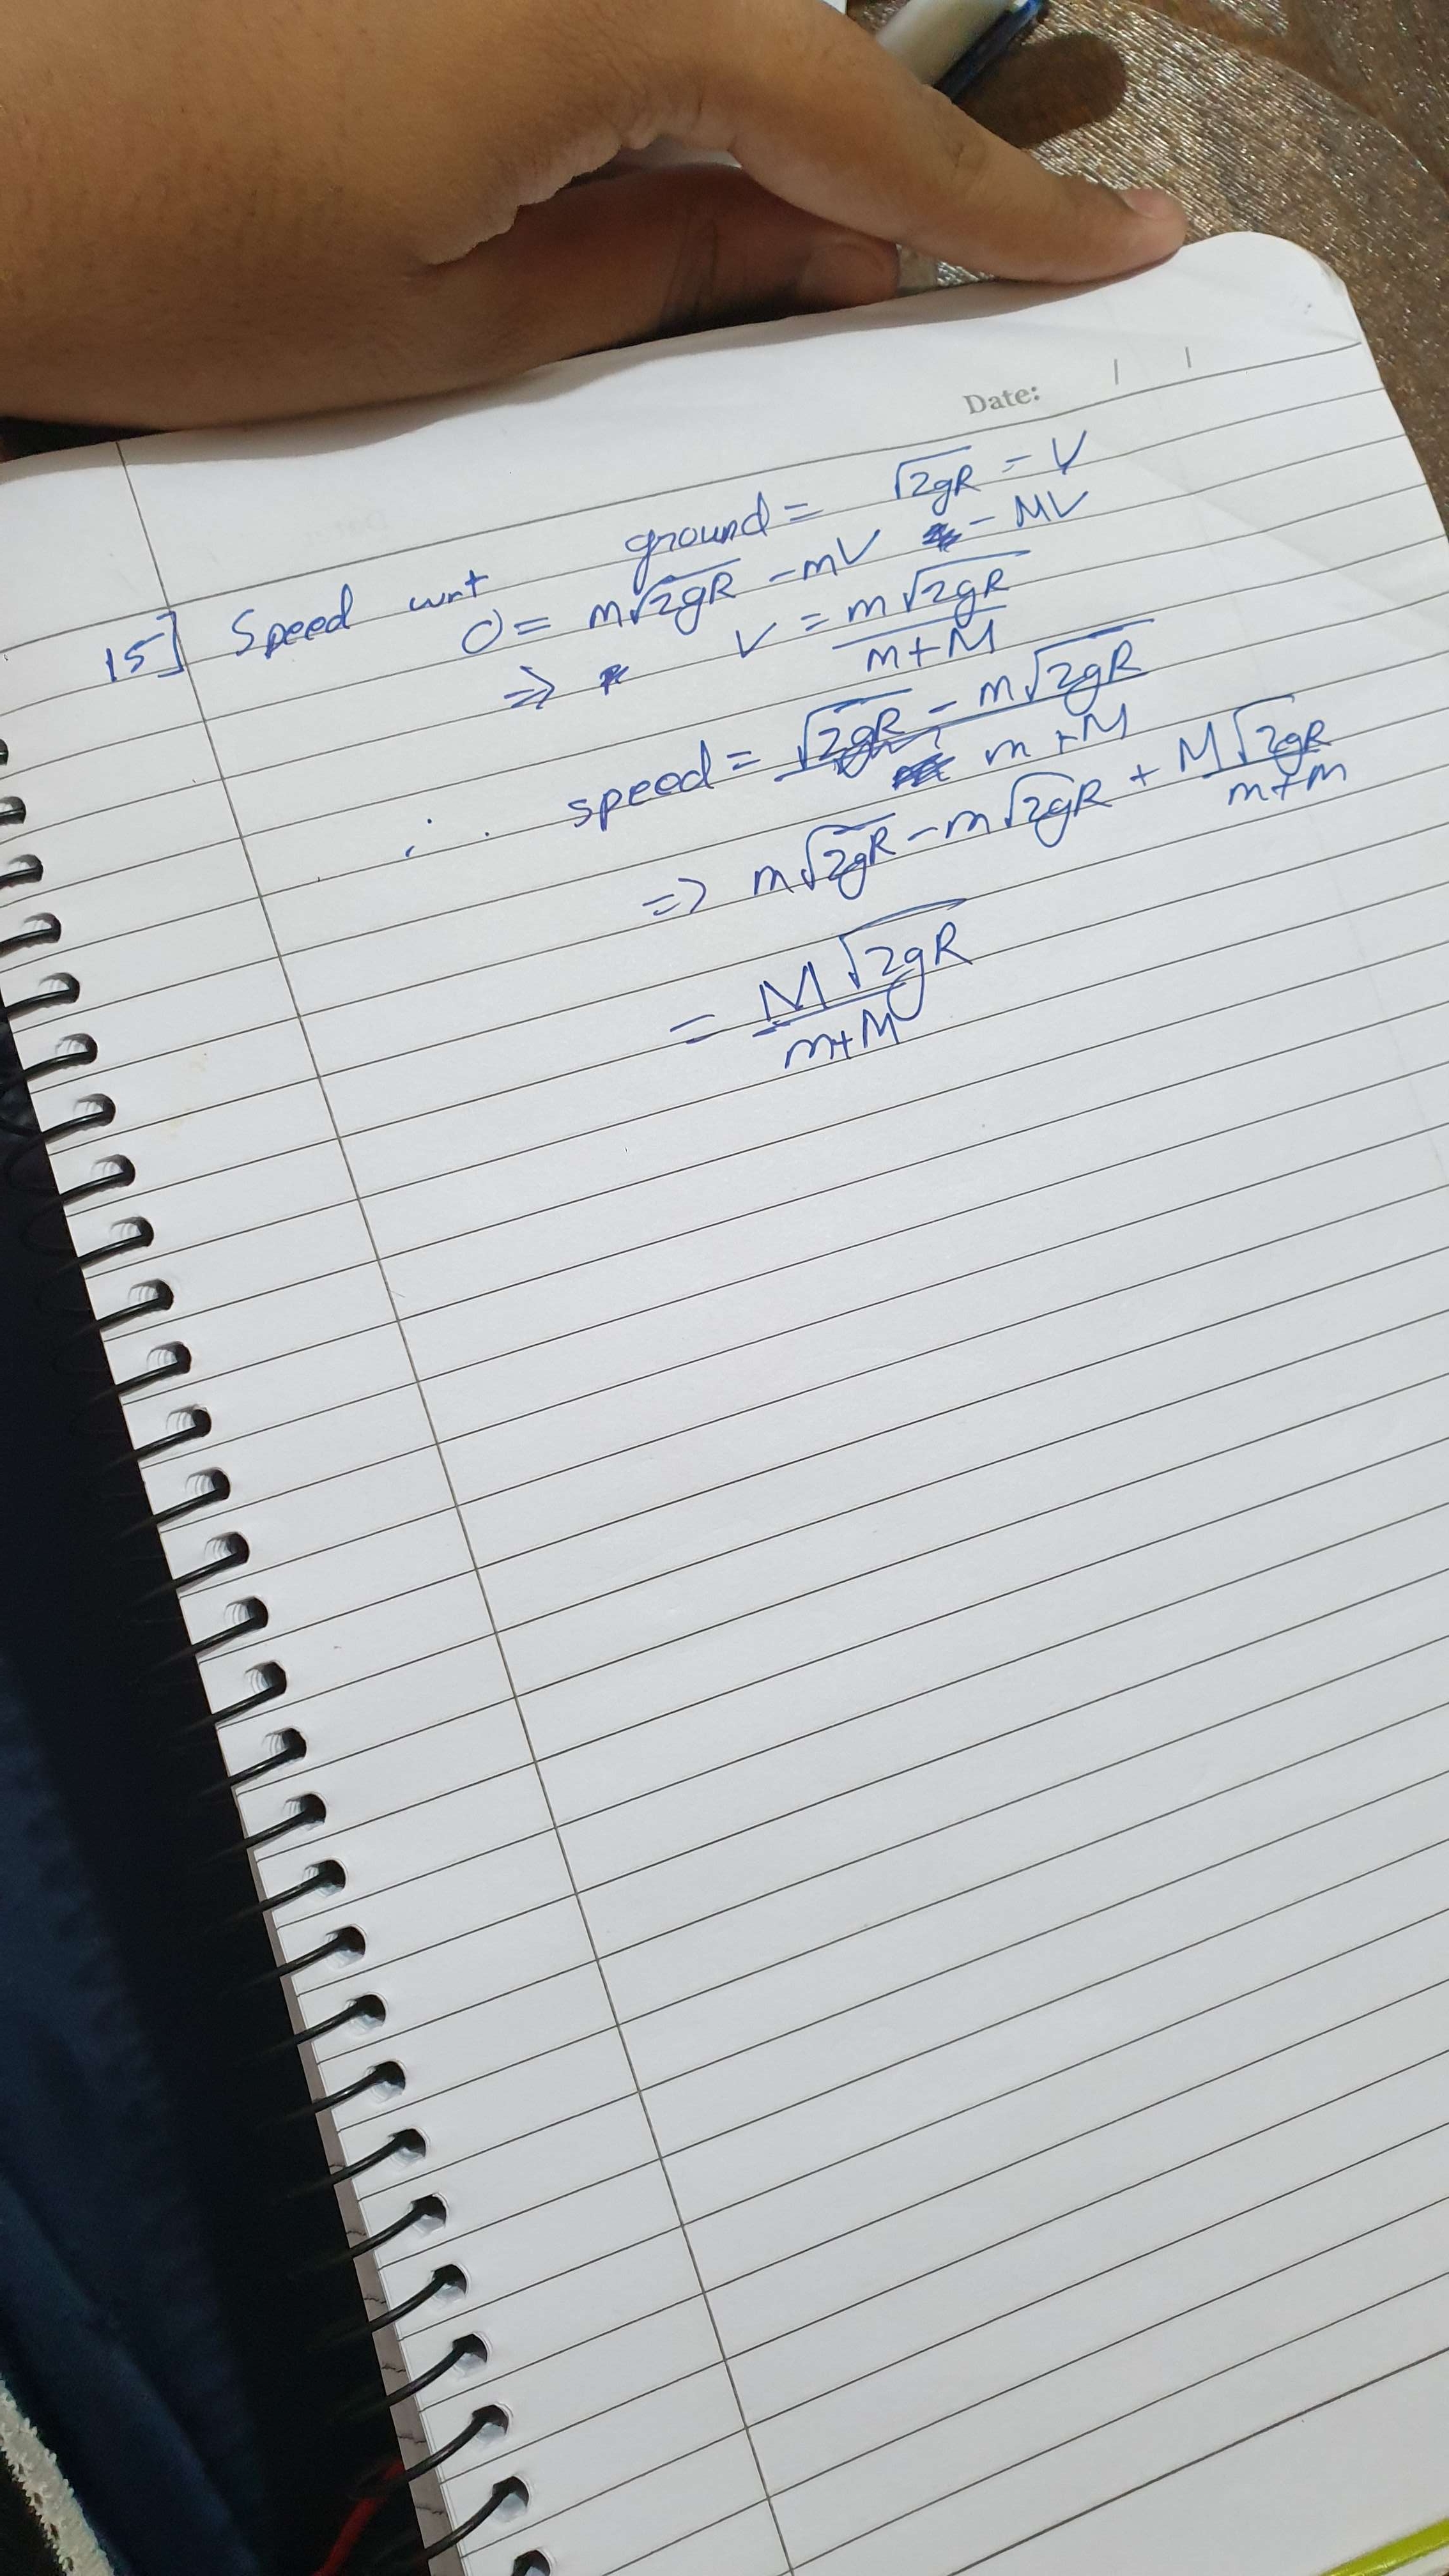 Date: / /
15] Speed wrt ground = √2gR - V
0 = m√2gR - mV - MV
⇒ V = m√2gR / m+M
∴ speed = √2gR - m√2gR / m+M
⇒ m√2gR - m√2gR + M√2gR / m+m
= M√2gR / m+M